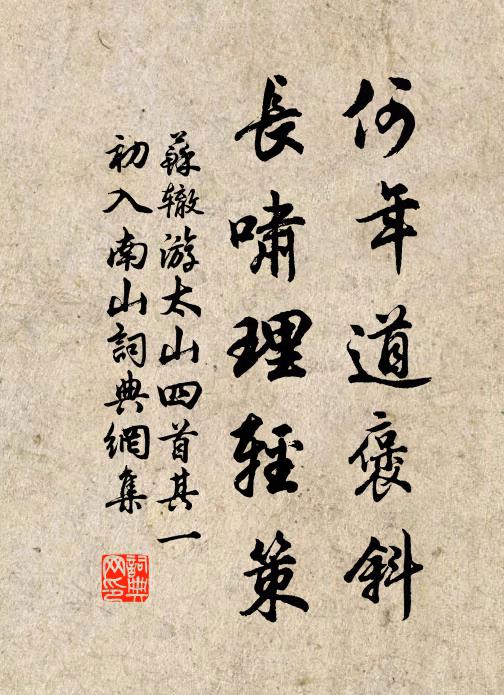 何年道褒斜
長嘯理輕策
蘇辙游太山四首其一
初入南山詞典網集
詞典
网印